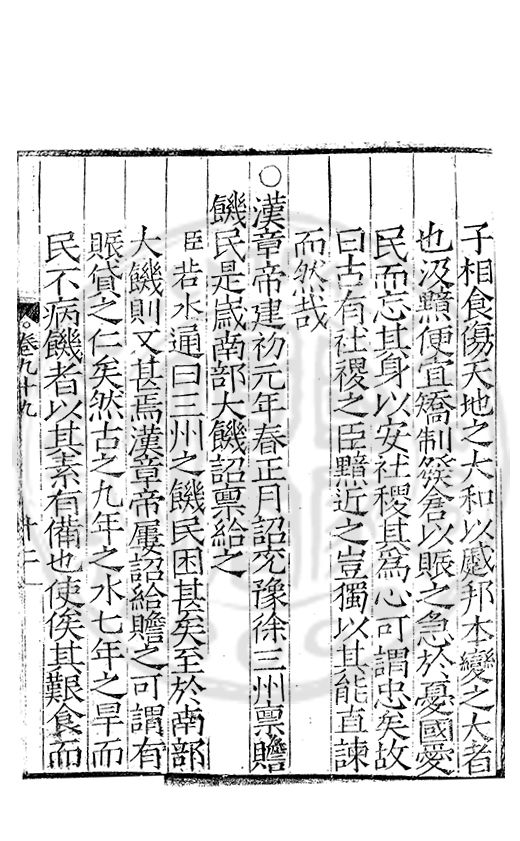 子相食傷天地之大和以慼邦本變之大者
也汲黯便宜矯制發倉以賑之急於憂國愛
民而忘其身以安社稷其爲心可謂忠矣故
曰古有社稷之臣黯近之豈獨以其能直諫
而然哉
○漢章帝建初元年春正月詔兖豫徐三州禀贍
饑民是歲南部大饑詔禀給之
臣若水通曰三州之饑民困甚矣至於南部
大饑則又甚焉漢章帝屢詔給贍之可謂有
賑貸之仁矣然古之九年之水七年之旱而
民不病饑者以其素有備也使俟其艱食而
○卷九十九